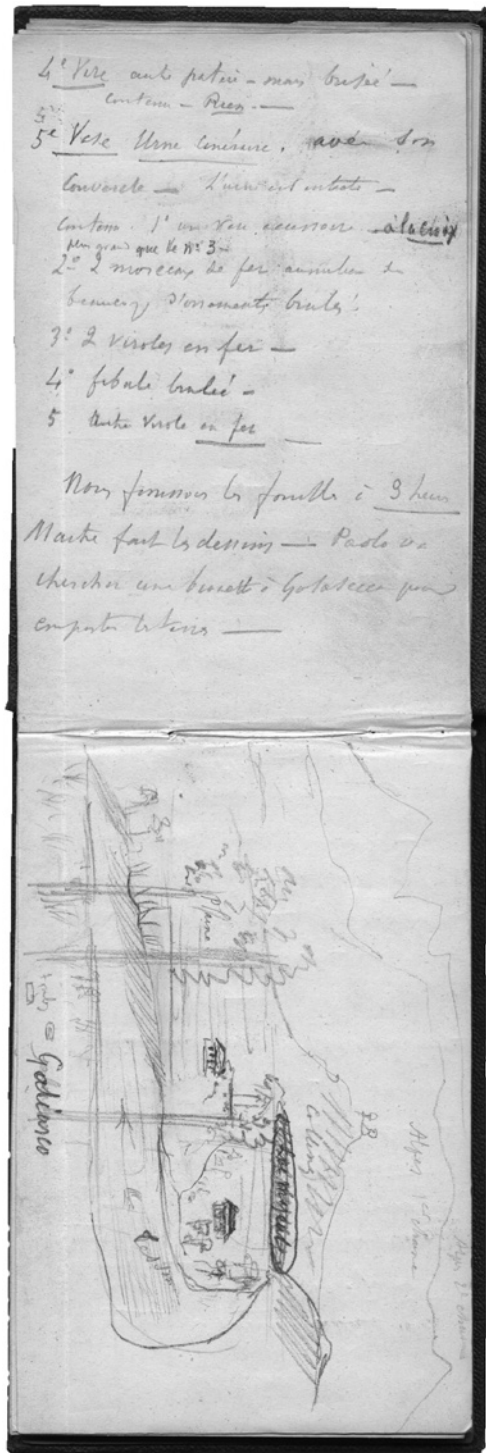 4e Vase autre patère - mais brisée -
contenu - Rien. -
5e
5e Vase Urne cinéraire. avec son
Couvercle - L'urne est intacte -
Contenu 1° un vase accessoire à la croix
plus grand que le N° 3 -
2° 2 morceaux de fer au milieu de
beaucoup d'ornements brulés.
3° 2 viroles en fer -
4° fibule brulée -
5 Autre virole en fer
Nous finissons les fouilles à 3 heures
Maitre fait les dessins - Paolo va
chercher une à Golasecca pour
emporter
Plaine
Colline
Alpes 1ere chaine
Alpes 2e chaine